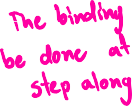 The binding
be done at
step along